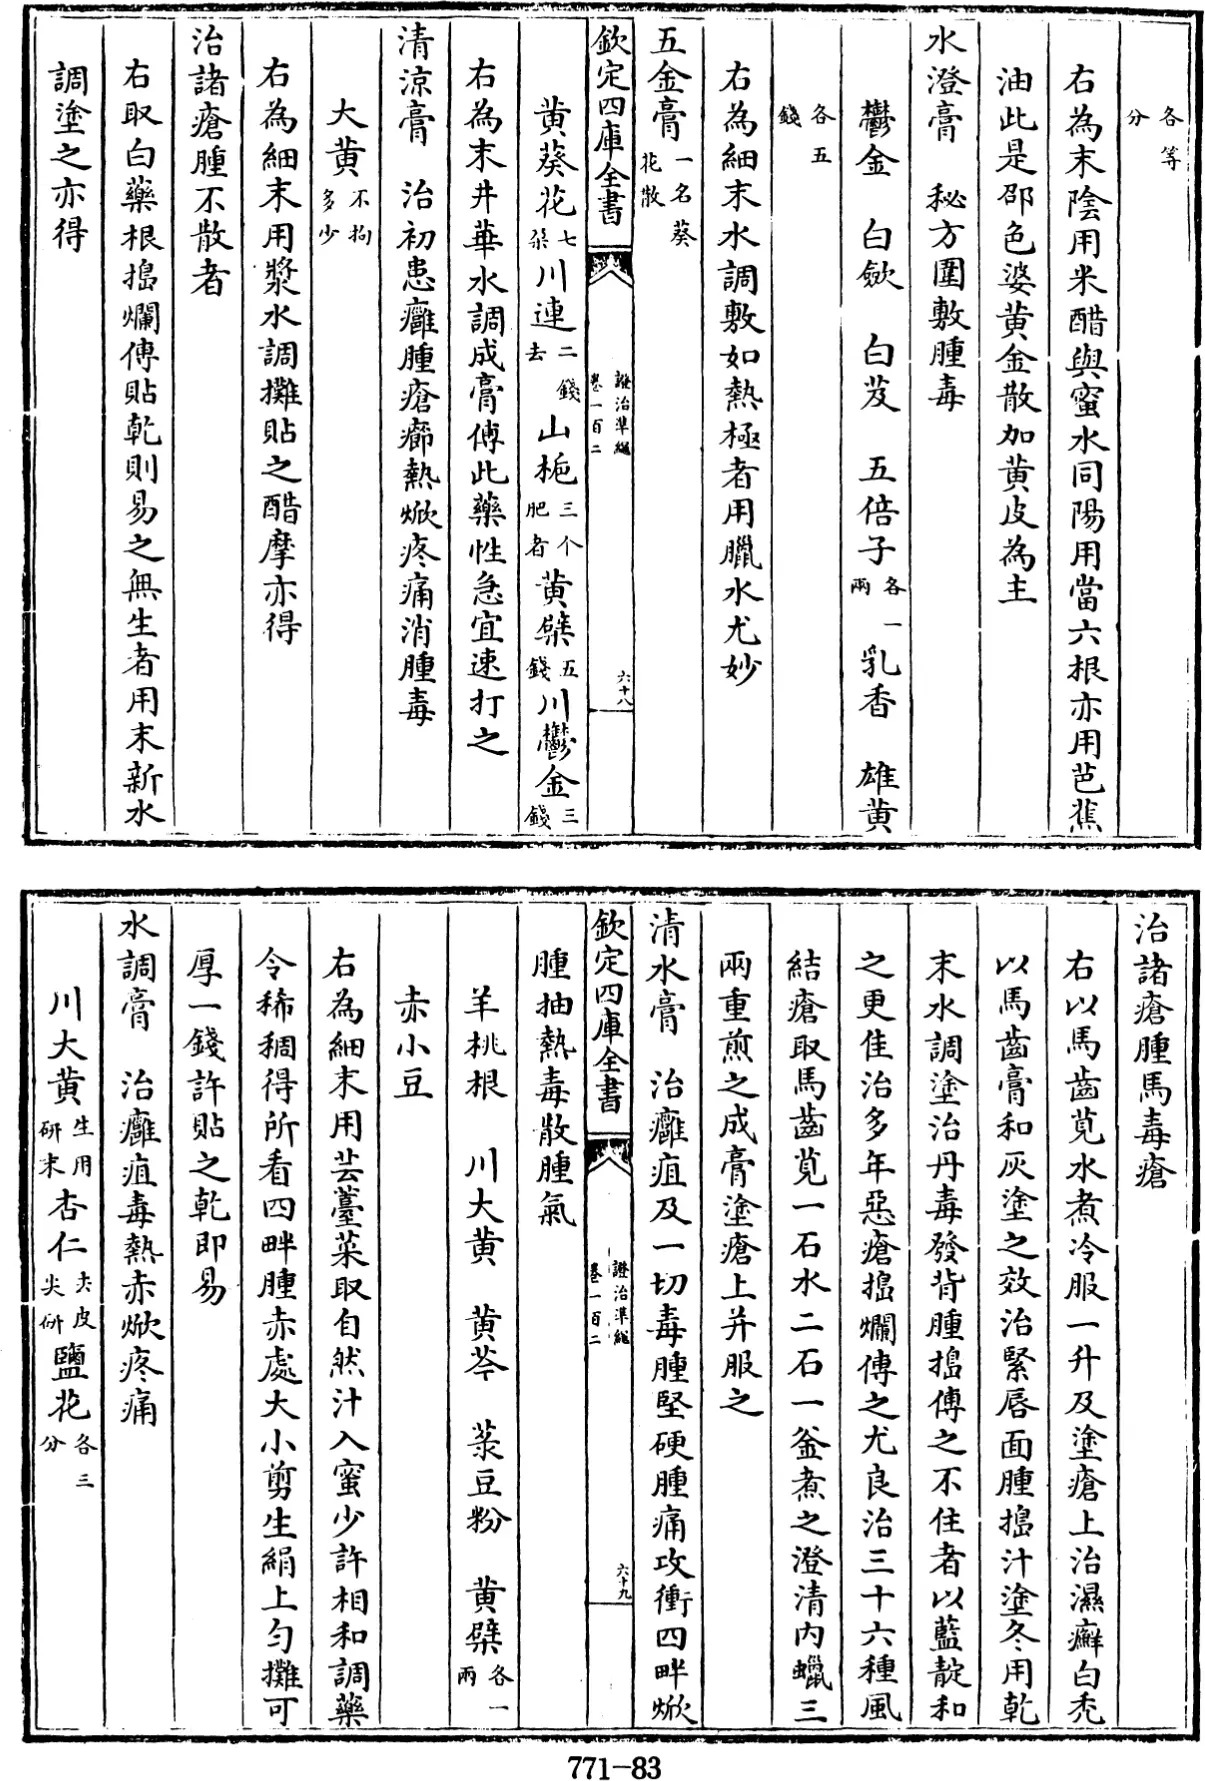 各等分
右為末陰用米醋與蜜水同陽用當六根亦用芭蕉
油此是邵色婆黄金散加黄皮為主
水澄膏　秘方圍敷腫毒
鬱金　白斂　白芨　五倍子各一兩乳香　雄黄
各五錢
右為細末水調敷如熱極者用臘水尤妙
五金膏一名葵花散
欽定四庫全書　證治準繩卷一百二　六十八
黄葵花七朶川連二錢去山梔三个肥者黄蘗五錢川鬱金三錢
右為末井華水調成膏傅此藥性急宜速打之
清涼膏　治初患癰腫瘡癤熱焮疼痛消腫毒
大黄不拘多少
右為細末用漿水調攤貼之醋摩亦得
治諸瘡腫不散者
右取白藥根搗爛傅貼乾則易之無生者用末新水
調塗之亦得
治諸瘡腫馬毒瘡
右以馬齒莧水煮冷服一升及塗瘡上治濕癬白禿
以馬齒膏和灰塗之效治緊唇面腫搗汁塗冬用乾
末水調塗治丹毒發背腫搗傅之不住者以藍靛和
之更佳治多年惡瘡搗爛傅之尤良治三十六種風
結瘡取馬齒莧一石水二石一釜煮之澄清内蠟三
兩重煎之成膏塗瘡上并服之
清水膏　治癰疽及一切毒腫堅硬腫痛攻衝四畔焮
欽定四庫全書　證治準繩卷一百二　六十九
腫抽熱毒散腫氣
羊桃根　川大黄　黄芩　菉豆粉　黄蘗各一兩
赤小豆
右為細末用芸薹菜取自然汁入蜜少許相和調藥
令稀稠得所看四畔腫赤處大小剪生絹上匀攤可
厚一錢許貼之乾即易
水調膏　治癰疽毒熱赤焮疼痛
川大黄生用研末杏仁去皮尖研鹽花各三分
771-83